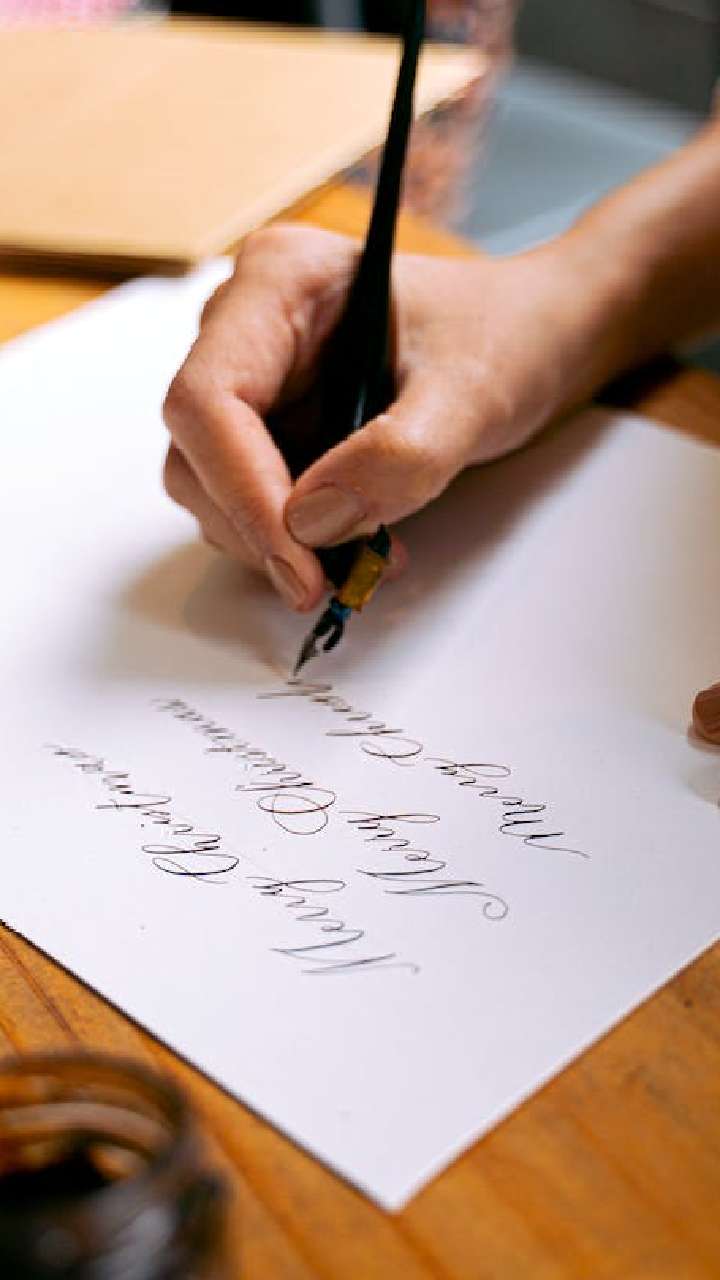 Merry Christmas
Merry Christmas
Merry